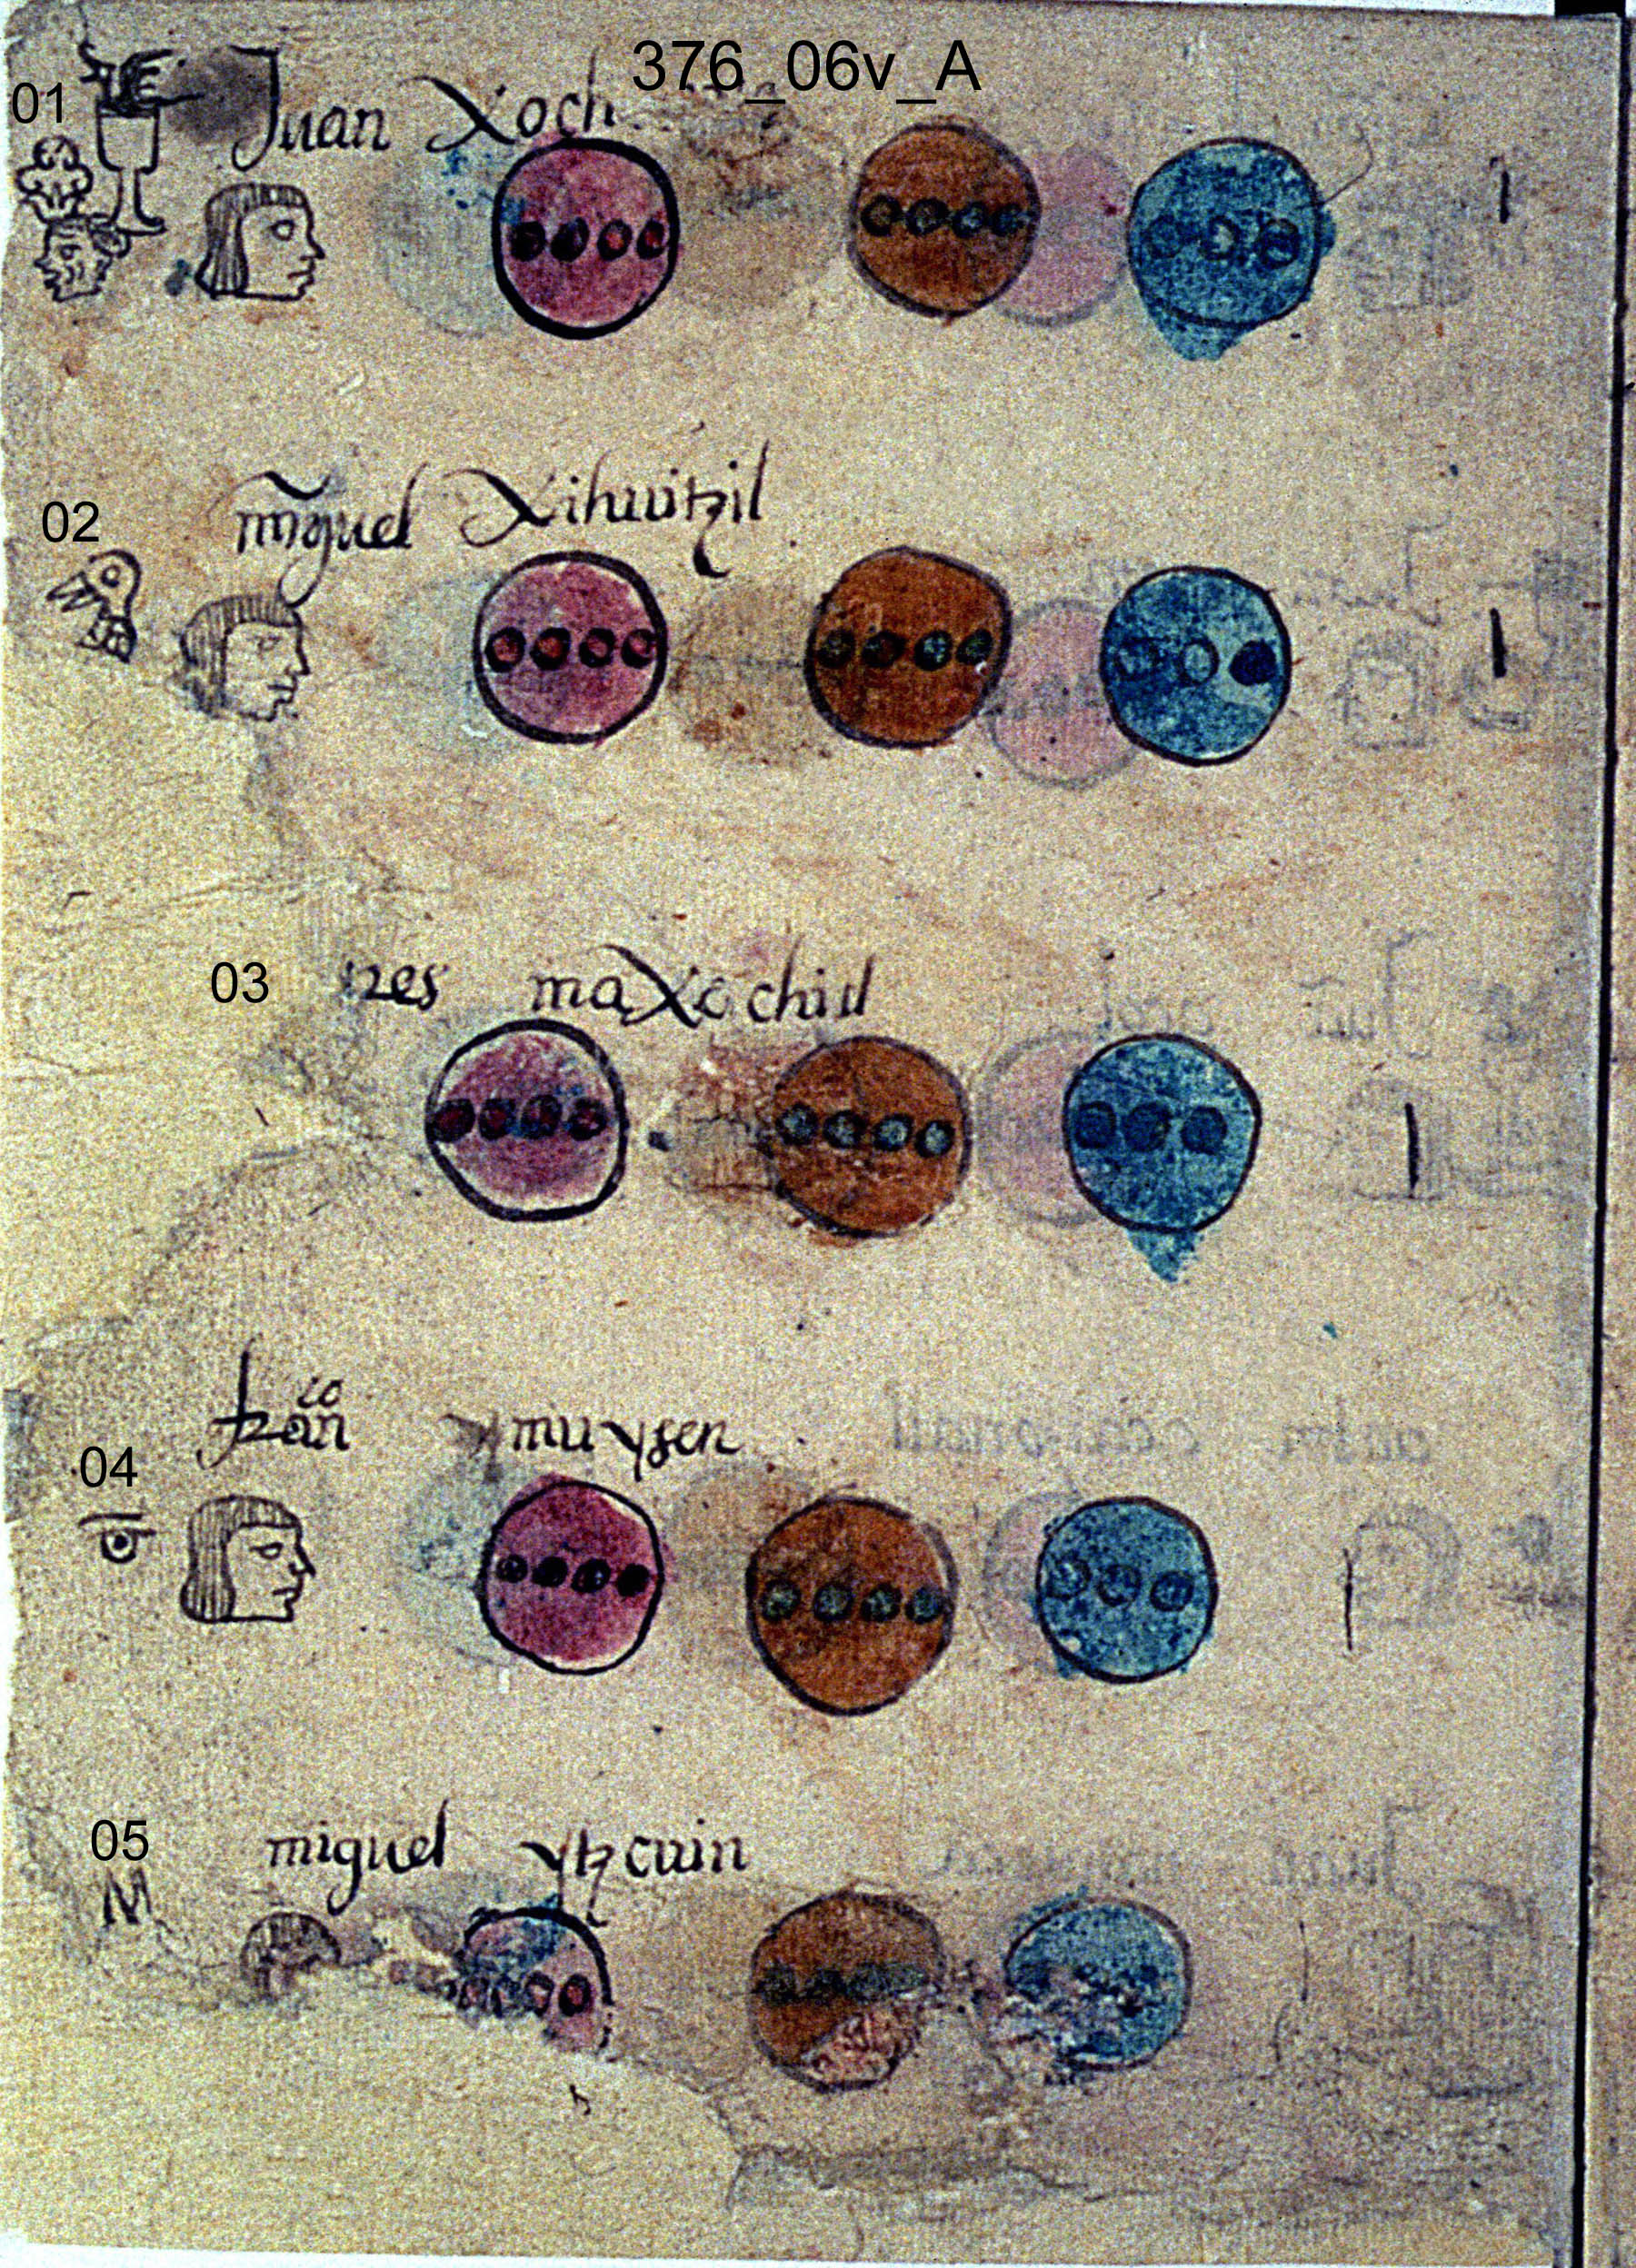 376_06v_A
01 Juan Xoch
02 miguel Xihuitzil
03 res maXochitl
04 franco muysen
05 miguel ytzcuin